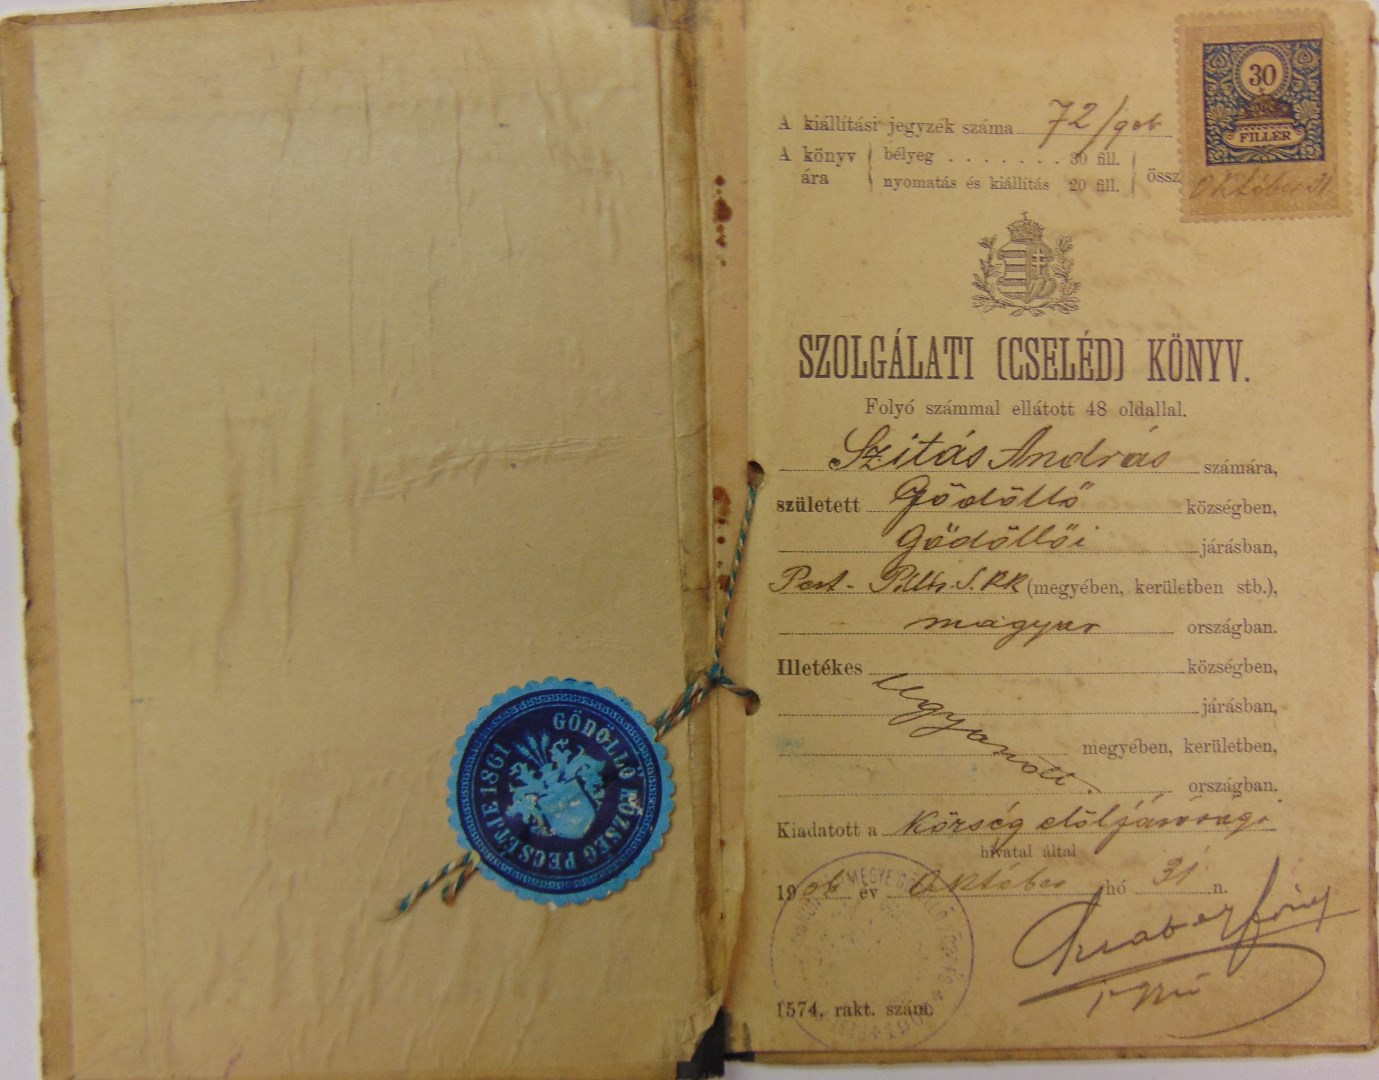 GÖDÖLLŐ KÖZSÉG PECSÉTJE 1861
30
FILLÉR
Október 31.
A kiállítási jegyzék száma 72/906
A könyv ára
bélyeg . . . . . . . 30 fill.
nyomatás és kiállítás 20 fill.
össz
SZOLGÁLATI (CSELÉD) KÖNYV.
Folyó számmal ellátott 48 oldallal.
Szitás András számára,
született Gödöllő községben,
Gödöllői járásban,
Pest-Pilis-S.KK (megyében, kerületben stb.),
magyar országban.
Illetékes községben,
ugyanott. járásban,
megyében, kerületben,
országban.
Kiadatott a község elöljárósági
hivatal által
1906 év Október hó 31 n.
1574. rakt. szám.